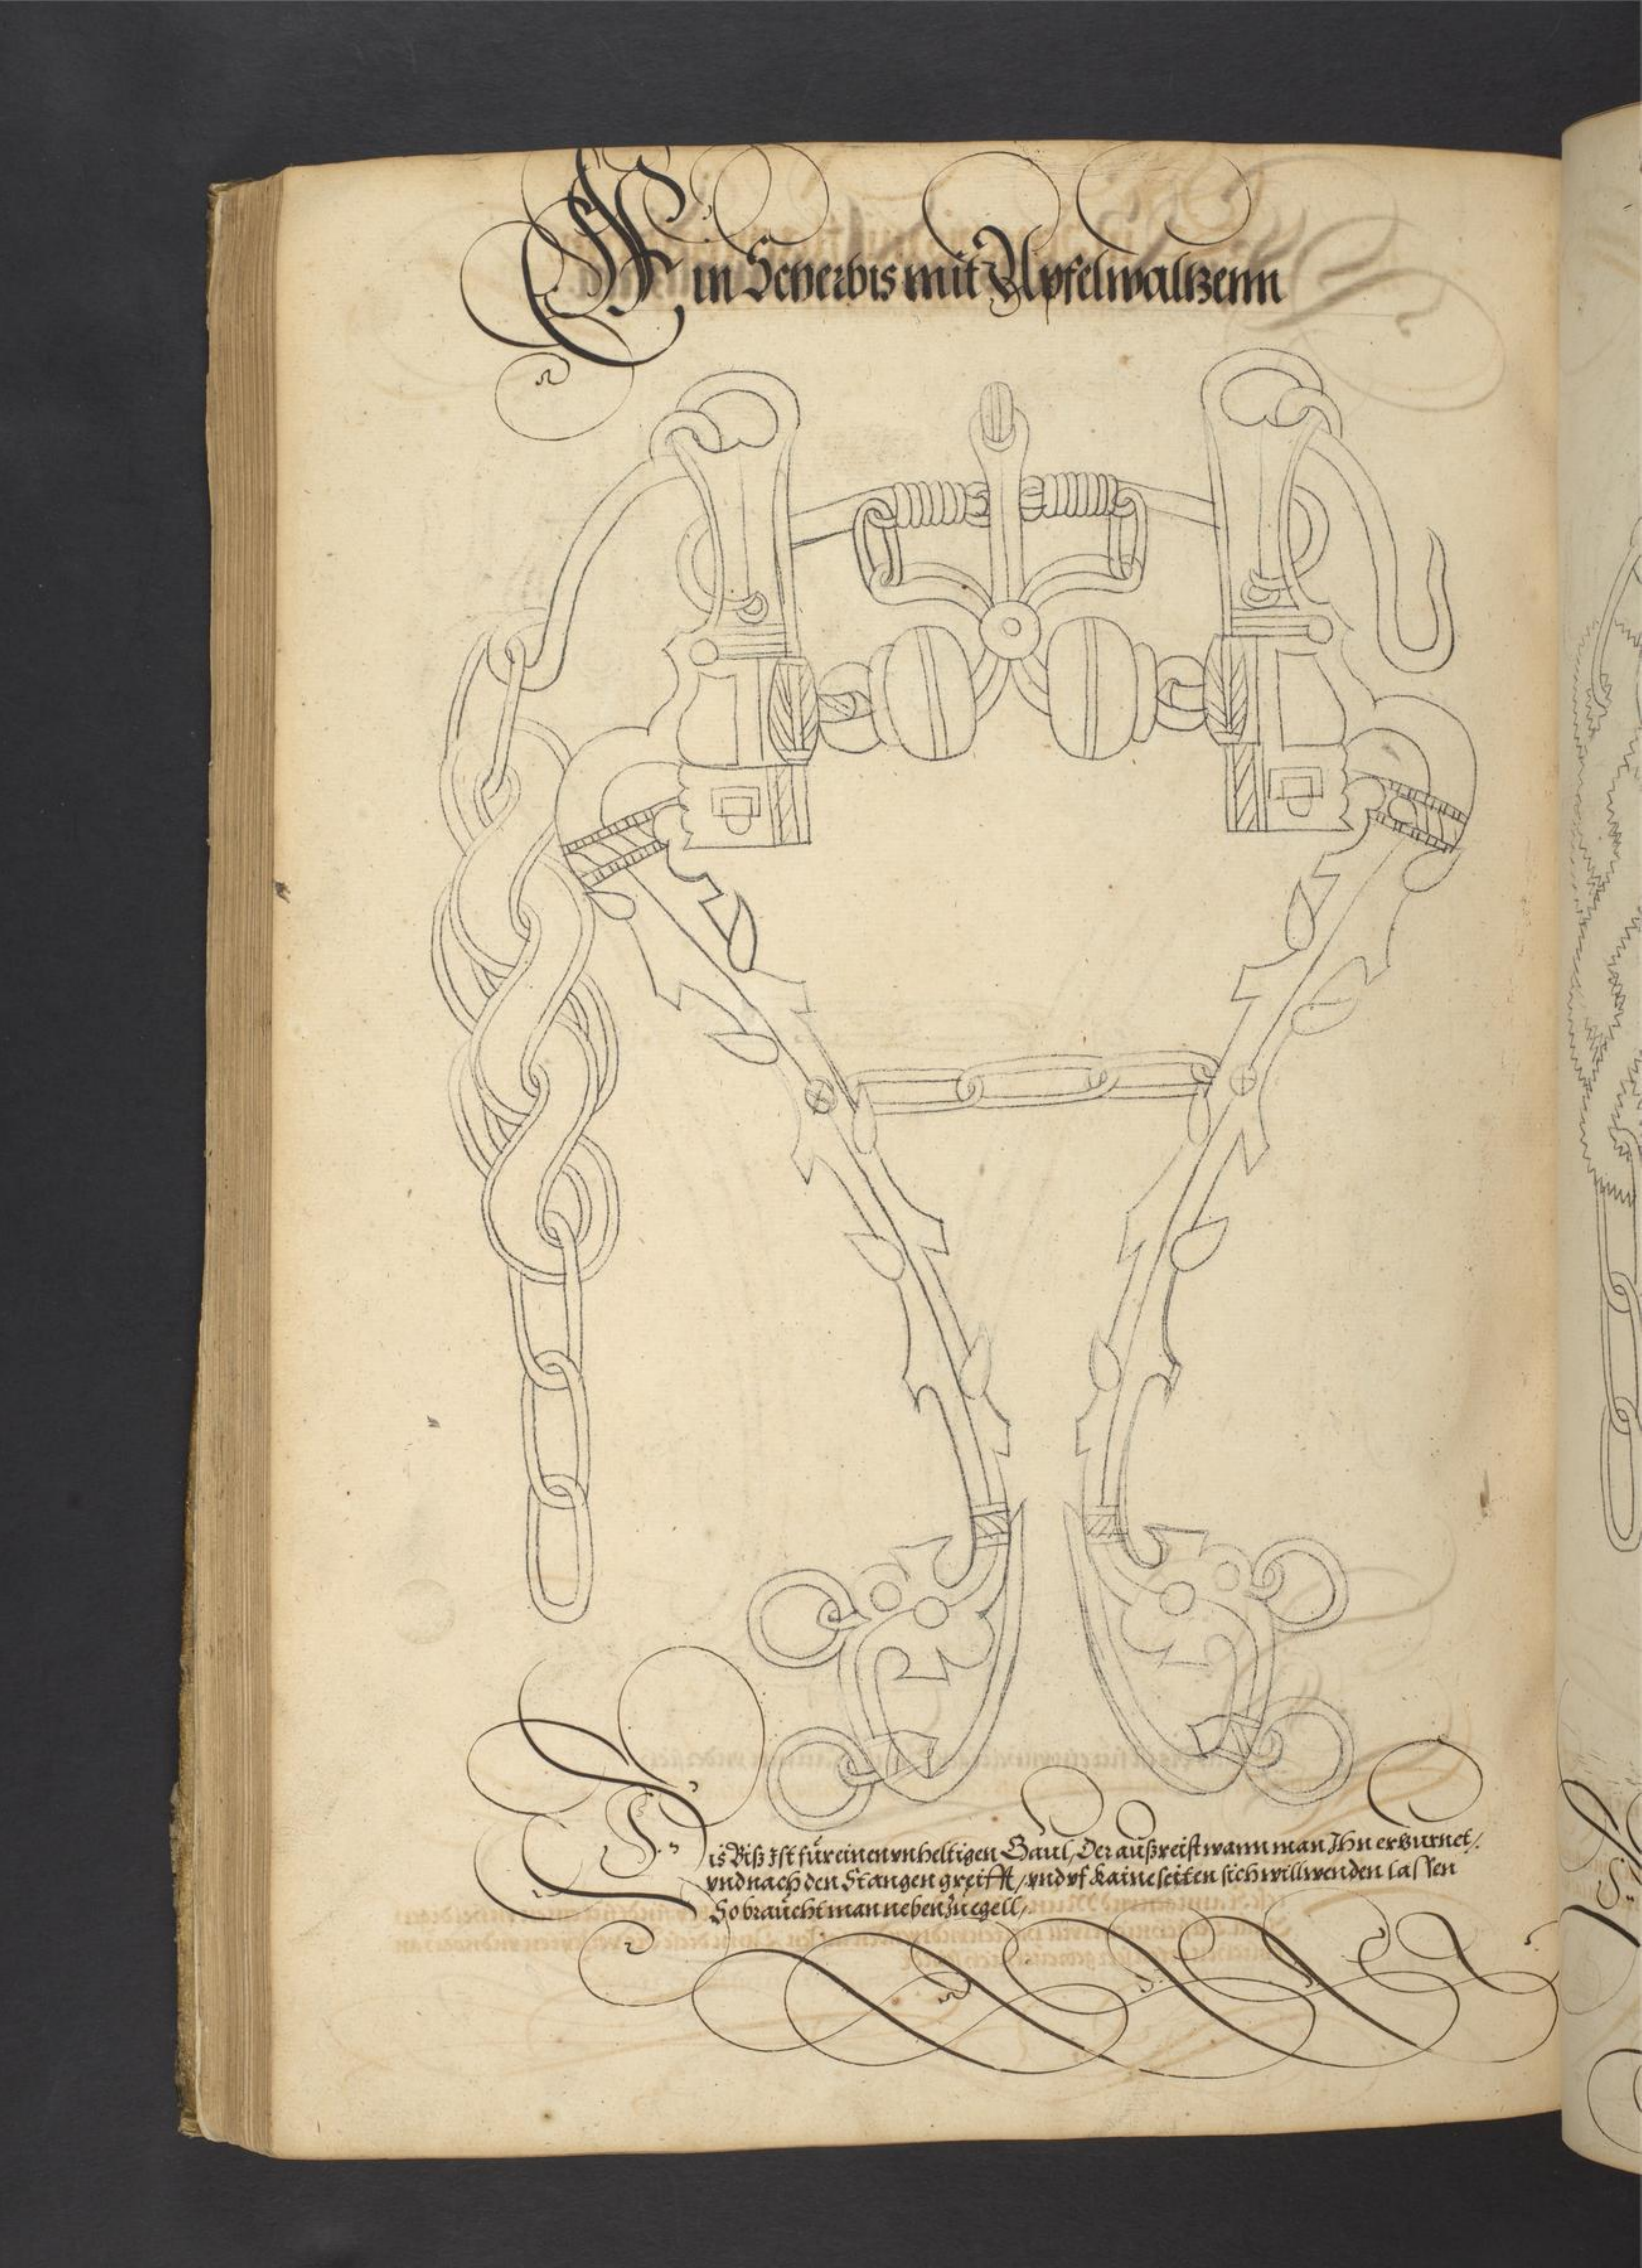 Ein Scherbis mit Apfelwaltzenn
Dis Biß Ist für einen vnheltigen Gaul, Der außreist wann man Ihn erzurnet/
vnd nach den Stangen greifft/ vnd vf kaine seiten sich will wenden lassen
So braücht man neben Zuegell/